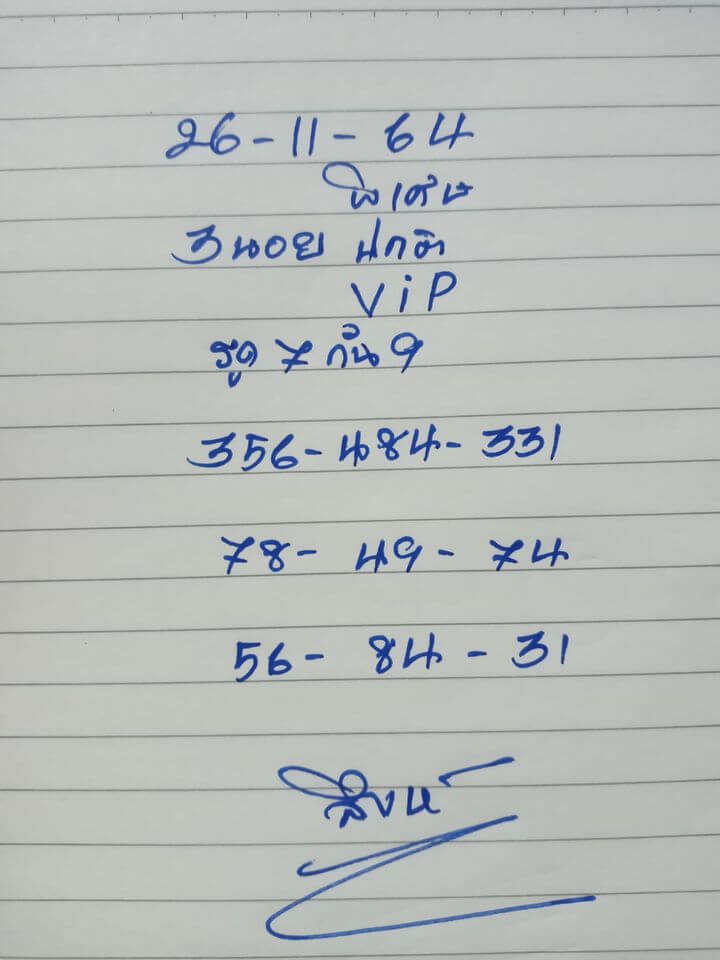 26-11-64
พิเศษ
3นอย ปกติ
ViP
รูด 7 กัน 9
356-484-331
78- 49- 74
56- 84-31
สิงห์